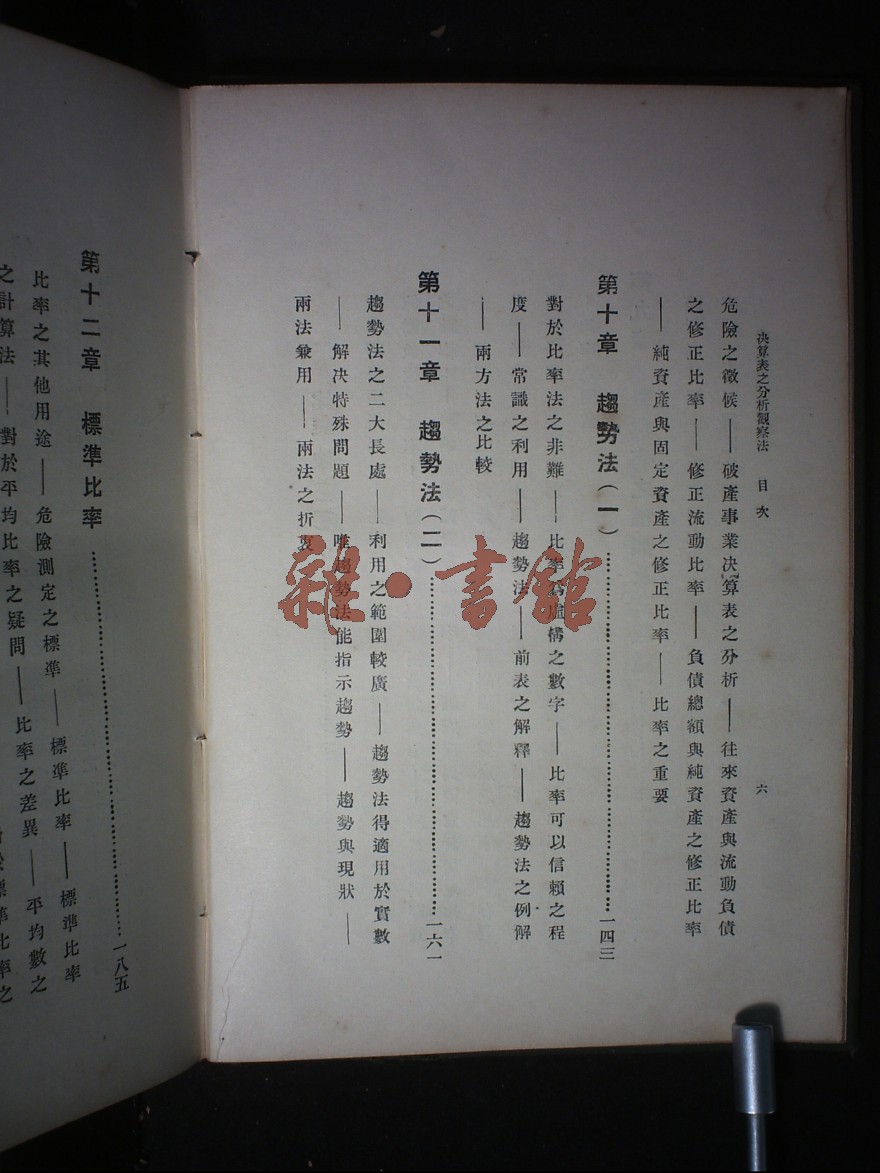 決算表之分析觀察法 目次 六
危險之徵候——破產事業決算表之分析——往來資產與流動負債
之修正比率——修正流動比率——負債總額與純資產之修正比率
——純資產與固定資產之修正比率——比率之重要
第十章 趨勢法(一)……一四三
對於比率法之非難——比率爲虛構之數字——比率可以信賴之程
度——常識之利用——趨勢法——前表之解釋——趨勢法之例解
——兩方法之比較
第十一章 趨勢法(二)……一六一
趨勢法之二大長處——利用之範圍較廣——趨勢法得適用於實數
——解決特殊問題——唯趨勢法能指示趨勢——趨勢與現狀——
兩法兼用——兩法之折衷
第十二章 標準比率……一八五
比率之其他用途——危險測定之標準——標準比率——標準比率
之計算法——對於平均比率之疑問——比率之差異——平均數之
雜·書館